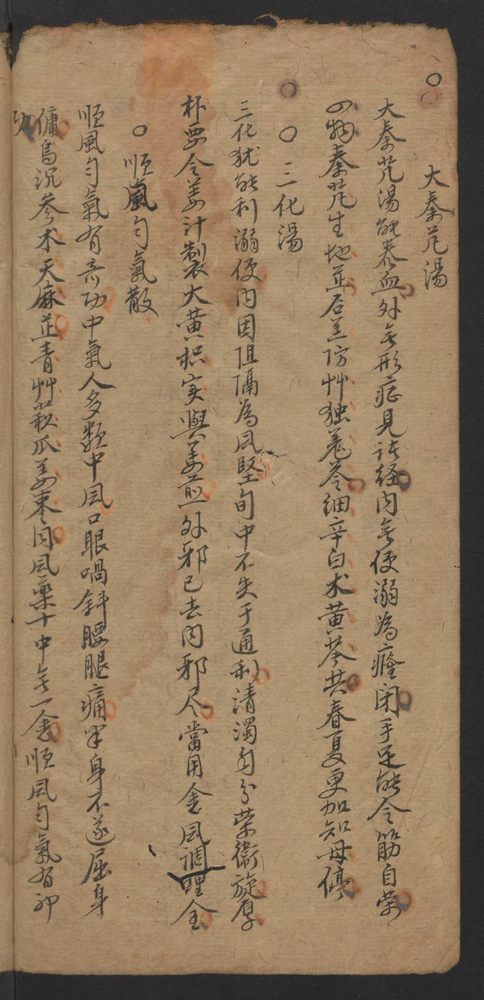 大秦艽湯
大秦艽湯能養血外無形症見諸経内無便溺為癃閉手足能令筋自荣
四物秦艽生地並石羌防艸独羌苓細辛白朮黄芩共春夏更加知母停
三化湯
三化犹能利溺便内因阻隔為风堅旬中不失于通利清濁匀分荣衛旋厚
朴要令姜汁製大黄枳实與羌煎外邪已去内邪尽當用金风調理全
順風匀氣散
順風匀氣有奇功中氣人多類中风口眼喎斜腰腿痛半身不遂屈身
傭烏沉參朮天麻芷青艸蘇瓜姜枣同风藥十中無一舍順风匀氣有神
功